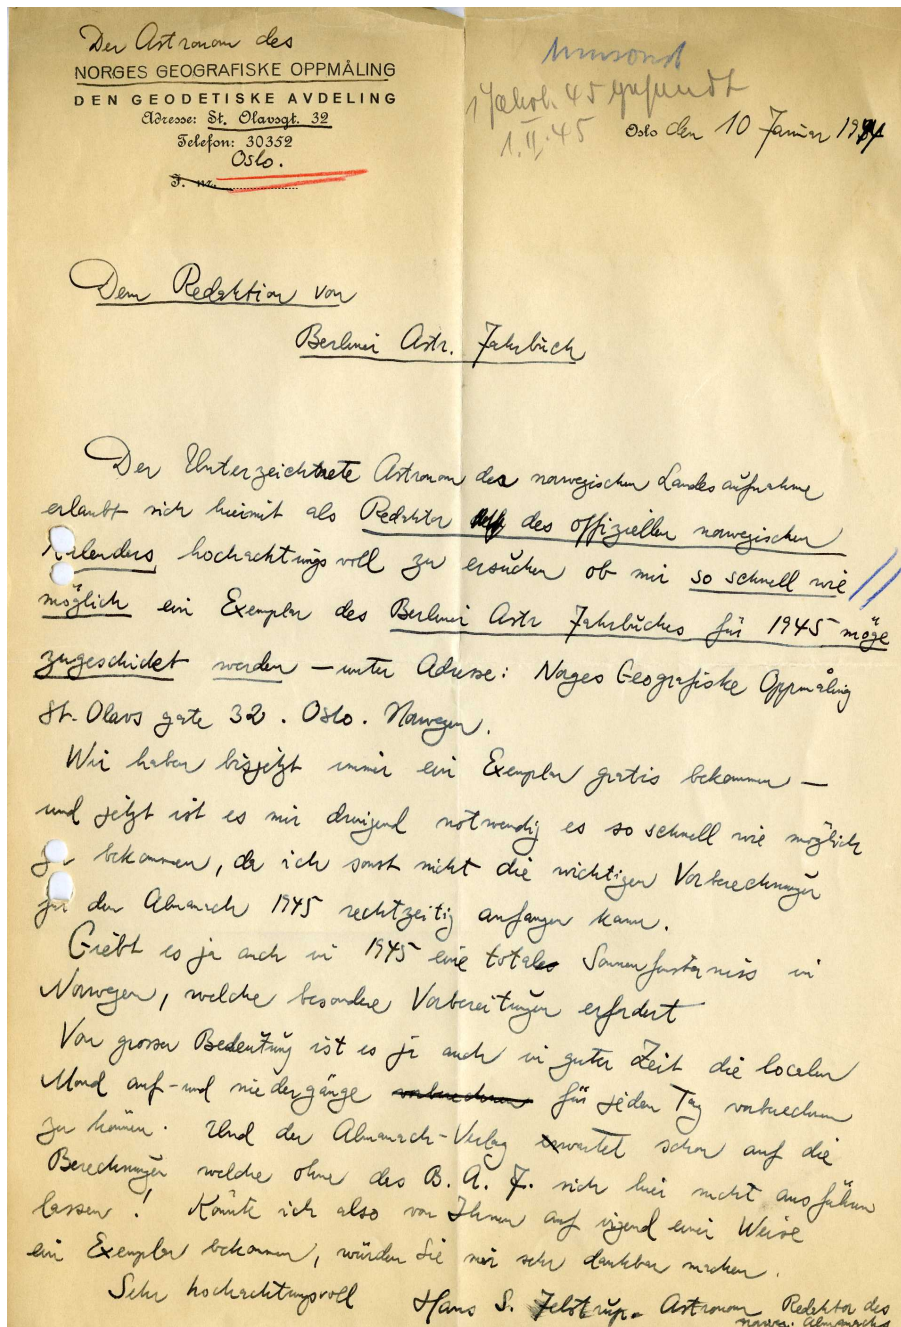 Der Astronom des
NORGES GEOGRAFISKE OPPMÅLING
DEN GEODETISKE AVDELING
Adresse: St. Olavsgt. 32
Telefon: 30352
Oslo.
J. nr.
Umsonst
1 Jahrb. 45 gesandt
1.II.45
Oslo den 10 Januar 1944
Dem Redaktion von
Berliner Astr. Jahrbuch
Der Unterzeichnete Astronom der norwegischen Landesaufnahme
erlaubt sich hiermit als Redaktor des offiziellen norwegischen
Kalenders hochachtungsvoll zu ersuchen ob mir so schnell wie
möglich ein Exemplar des Berliner Astr Jahrbuches für 1945 möge
zugeschicket werden – unter Adresse: Norges Geografiske Oppmåling
St. Olavs gate 32. Oslo. Norwegen.
Wir haben bisjetzt immer ein Exemplar gratis bekommen –
und jetzt ist es mir dringend notwendig es so schnell wie möglich
zu bekommen, da ich sonst nicht die wichtigen Vorberechnungen
für den Almanach 1945 rechtzeitig anfangen kann.
Giebt es ja auch in 1945 eine totale Sonnenfinsterniss in
Norwegen, welche besondere Vorbereitungen erfordert
Von grosser Bedeutung ist es ja auch in guter Zeit die localen
Mond auf- und niedergänge für jeden Tag vorberechnen
zu können. Und der Almanach-Verlag erwartet schon auf die
Berechnungen welche ohne des B. A. J. sich hier nicht ausführen
lassen! Könnte ich also von Ihnen auf irgend einer Weise
ein Exemplar bekommen, würden Sie mir sehr dankbar machen.
Sehr hochachtungsvoll Hans S. Jelstrup. Astronom Redaktor des
norw. Almanachs